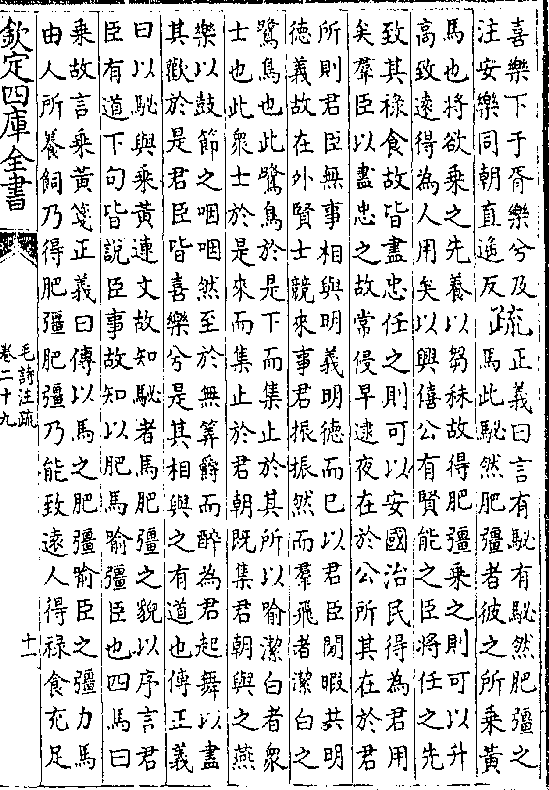 喜樂下于胥樂兮及
注安樂同朝直遙反
疏
正義曰言有駜有駜然肥彊之
馬此駜然肥彊者彼之所乘黃
馬也將欲乘之先養以芻秣故得肥彊乘之則可以升
高致遠得為人用矣以興僖公有賢能之臣將任之先
致其祿食故皆盡忠任之則可以安國治民得為君用
矣羣臣以盡忠之故常侵早逮夜在於公所其在於君
所則君臣無事相與明義明德而已以君臣閒暇共明
德義故在外賢士競來事君振振然而羣飛者潔白之
鷺鳥也此鷺鳥於是下而集止於其所以喻潔白者衆
士也此衆士於是來而集止於君朝既集君朝與之燕
樂以鼓節之咽咽然至於無筭爵而醉為君起舞以盡
其歡於是君臣皆喜樂兮是其相與之有道也傳正義
曰以駜與乘黃連文故知駜者馬肥彊之貌以序言君
臣有道下句皆説臣事故知以肥馬喻彊臣也四馬曰
乘故言乘黃箋正義曰傳以馬之肥彊喻臣之彊力馬
由人所養飼乃得肥彊肥彊乃能致遠人得祿食充足
欽定四庫全書
毛詩注疏
卷二十九
十一